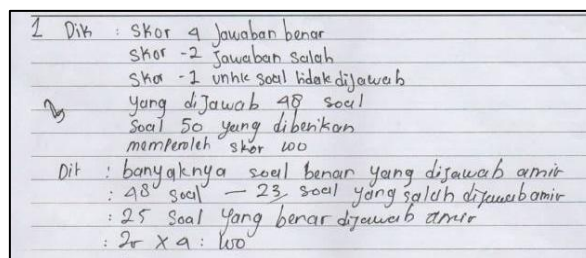 1 Dik : skor 4 Jawaban benar
skor -2 Jawaban salah
skor -1 untuk soal tidak dijawab
yang diJawab 48 soal
Soal 50 yang diberikan
memperoleh skor 100
Dit : banyaknya soal benar yang dijawab amir
: 48 soal — 23 soal yang salah dijawab amir
: 25 Soal yang benar dijawab amir
: 25 X 4 : 100